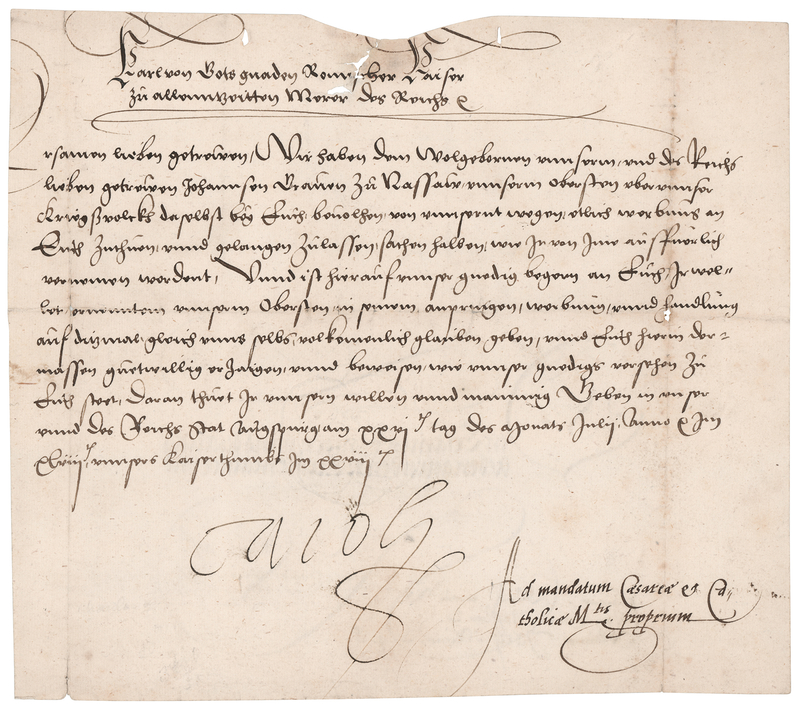 Karl von Gots gnaden Romischer Kaiser
Zu allenntzeitten Merer des Reichs ⁊
rsamen lieben getrewen, Wir haben dem Wolgebornen unnserm, und des Reichs
lieben getrewen Johannsen Graven zu Nassaw, unnserm Obersten uber unnser
Kriegsvolckh daselbst bey Euch, bevolhen, von unnsernt wegen, etlich werbung an
Euch Zuthuen, unnd gelangen Zulassen, sachen halben, wie Ir von Ime ausfuerlich
vernemen werdent, Unnd ist hierauf unnser gnedig begern an Euch, Ir wel-
let ernenntem unnserm Obersten, in seinem anpringen, werbung, unnd handlung
auf ditzmal, gleich unns selbs, volkomenlich glauben geben, unnd Euch hierin der-
massen guetwillig erzaigen, unnd beweisen, wie unnser gnedigs versehen zu
Euch steet, Daran thuet Ir unnsern willen unnd mainung Geben in unser
unnd des Reichs Stat Augspurg am xxvi tag des Monats Julii, Anno ⁊ Im
xlviii, unnsers Kaiserthumbs Im xxviii
Carolus
Ad mandatum Cæsareæ et Ca-
tholicæ M.tis proprium